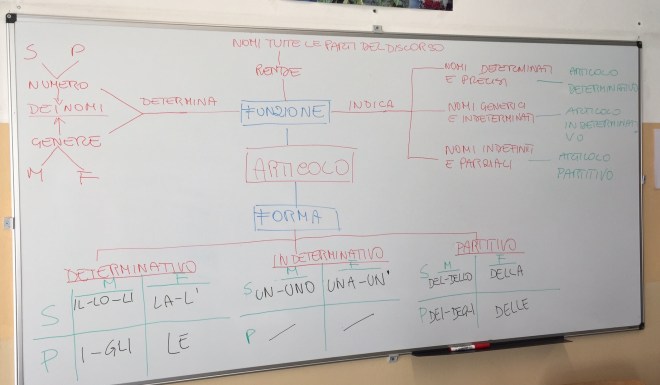 NOMI TUTTE LE PARTI DEL DISCORSO
RENDE
S P
NUMERO
DEI NOMI
GENERE
M F
DETERMINA
FUNZIONE
INDICA
NOMI DETERMINATI
E PRECISI
ARTICOLO
DETERMINATIVO
NOMI GENERICI
E INDETERMINATI
ARTICOLO
INDETERMINATI
VO
NOMI INDEFINITI
E PARZIALI
ARTICOLO
PARTITIVO
ARTICOLO
FORMA
DETERMINATIVO
M F
S IL-LO-L' LA-L'
P I-GLI LE
INDETERMINATIVO
M F
S UN-UNO UNA-UN'
P / /
PARTITIVO
M F
S DEL-DELLO DELLA
P DEI-DEGLI DELLE